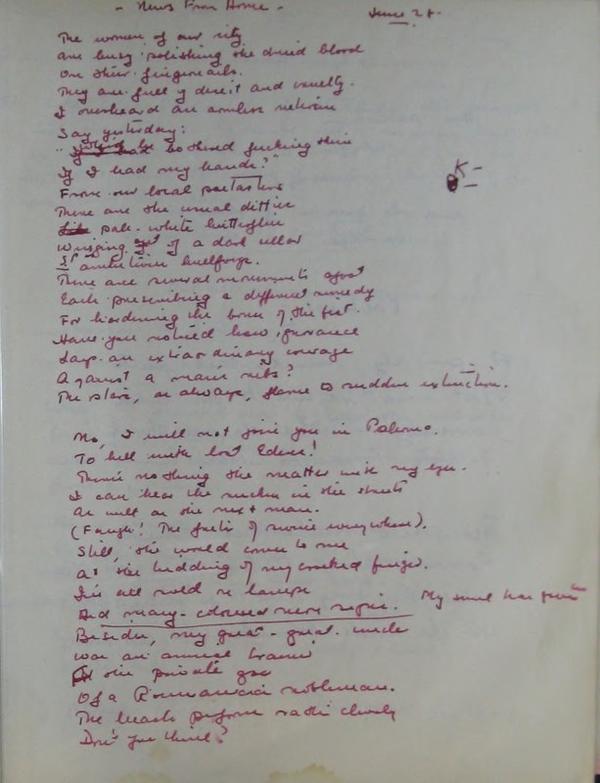 - News From Home -
June 24.
The women of our city
are busy polishing the dried blood
On their fingernails.
They are full of deceit and cruelty.
I overheard an armless veteran
Say yesterday:
be bothered fucking them
If I had my hands?"
From our local poetasters
There are the usual ditties
pale-white butterflies
Winging out of a dark cellar
ambulives hellforge.
There are several movements afoot
Each prescribing a different remedy
For hardening the bones of the feet.
Have you noticed how ignorance
Lays an extraordinary courage
Against a man's ribs?
The stars, as always, flame to sudden extinction.
K-
No, I will not join you in Palermo.
To hell with lost Edens!
There's nothing the matter with my eyes.
I can hear the in the streets
As well as the next man.
(Faugh! The of everywhere).
Still, the world comes to me
At the bidding of my crooked finger.
It's all
And many-coloured
My soul has
Besides, my great-great-uncle
was an animal trainer
In the private zoo
Of a Roumanian nobleman.
The beasts perform rather cleverly
Don't you think?